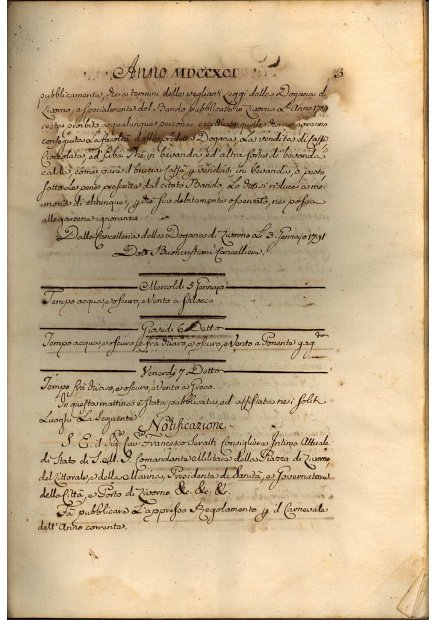 ANNO MDCCXCI 3
pubblicamente, che a termini delle veglianti Leggi della Dogana di
Livorno, e specialmente del Bando pubblicato in Livorno L'Anno
resta proibito a qualunque persona eccettuate quelle che ne avranno
conseguita La facoltà dalla predetta Dogana, La vendita di Caffè
Cioccolata, ed Erba The in bevanda ed altra sorte di bevanda
calda, come pure il bruciar Caffè, e venderlo in bevanda, o pesto
sotto le pene prescritte dal citato Bando, Lo che si riduce a me-
moria di chiunque, perché sia debitamente osservato, né possa
allegarsene ignoranza.
Dalla Cancelleria della Dogana di Livorno Li 3. Gennajo 1791
Dott. Buoncristiani Cancelliere
Mercoldì 5 Gennajo
Tempo acqua, e oscuro, e Vento a Scilocco
Giovedì 6 Detto
Tempo acqua, e oscuro, e fra chiaro, e oscuro, e Vento a Ponente
Venerdì 7 Detto
Tempo fra chiaro, e oscuro, e Vento a Greco.
In questa mattina è stata pubblicata, ed affissata nei soliti
Luoghi La Seguente
Notificazione
S. E. il Sig. Francesco Seratti Consigliere Intimo Attuale
di Stato di S. A. R. Comandante Militare della Piazza di Livorno,
del Littorale, e della Marina, Presidente di Sanità, e Governatore
della Città, e Porto di Livorno &c. &c. &c.
Fa pubblicare L'appresso Regolamento per il Carnevale
dell'Anno corrente.